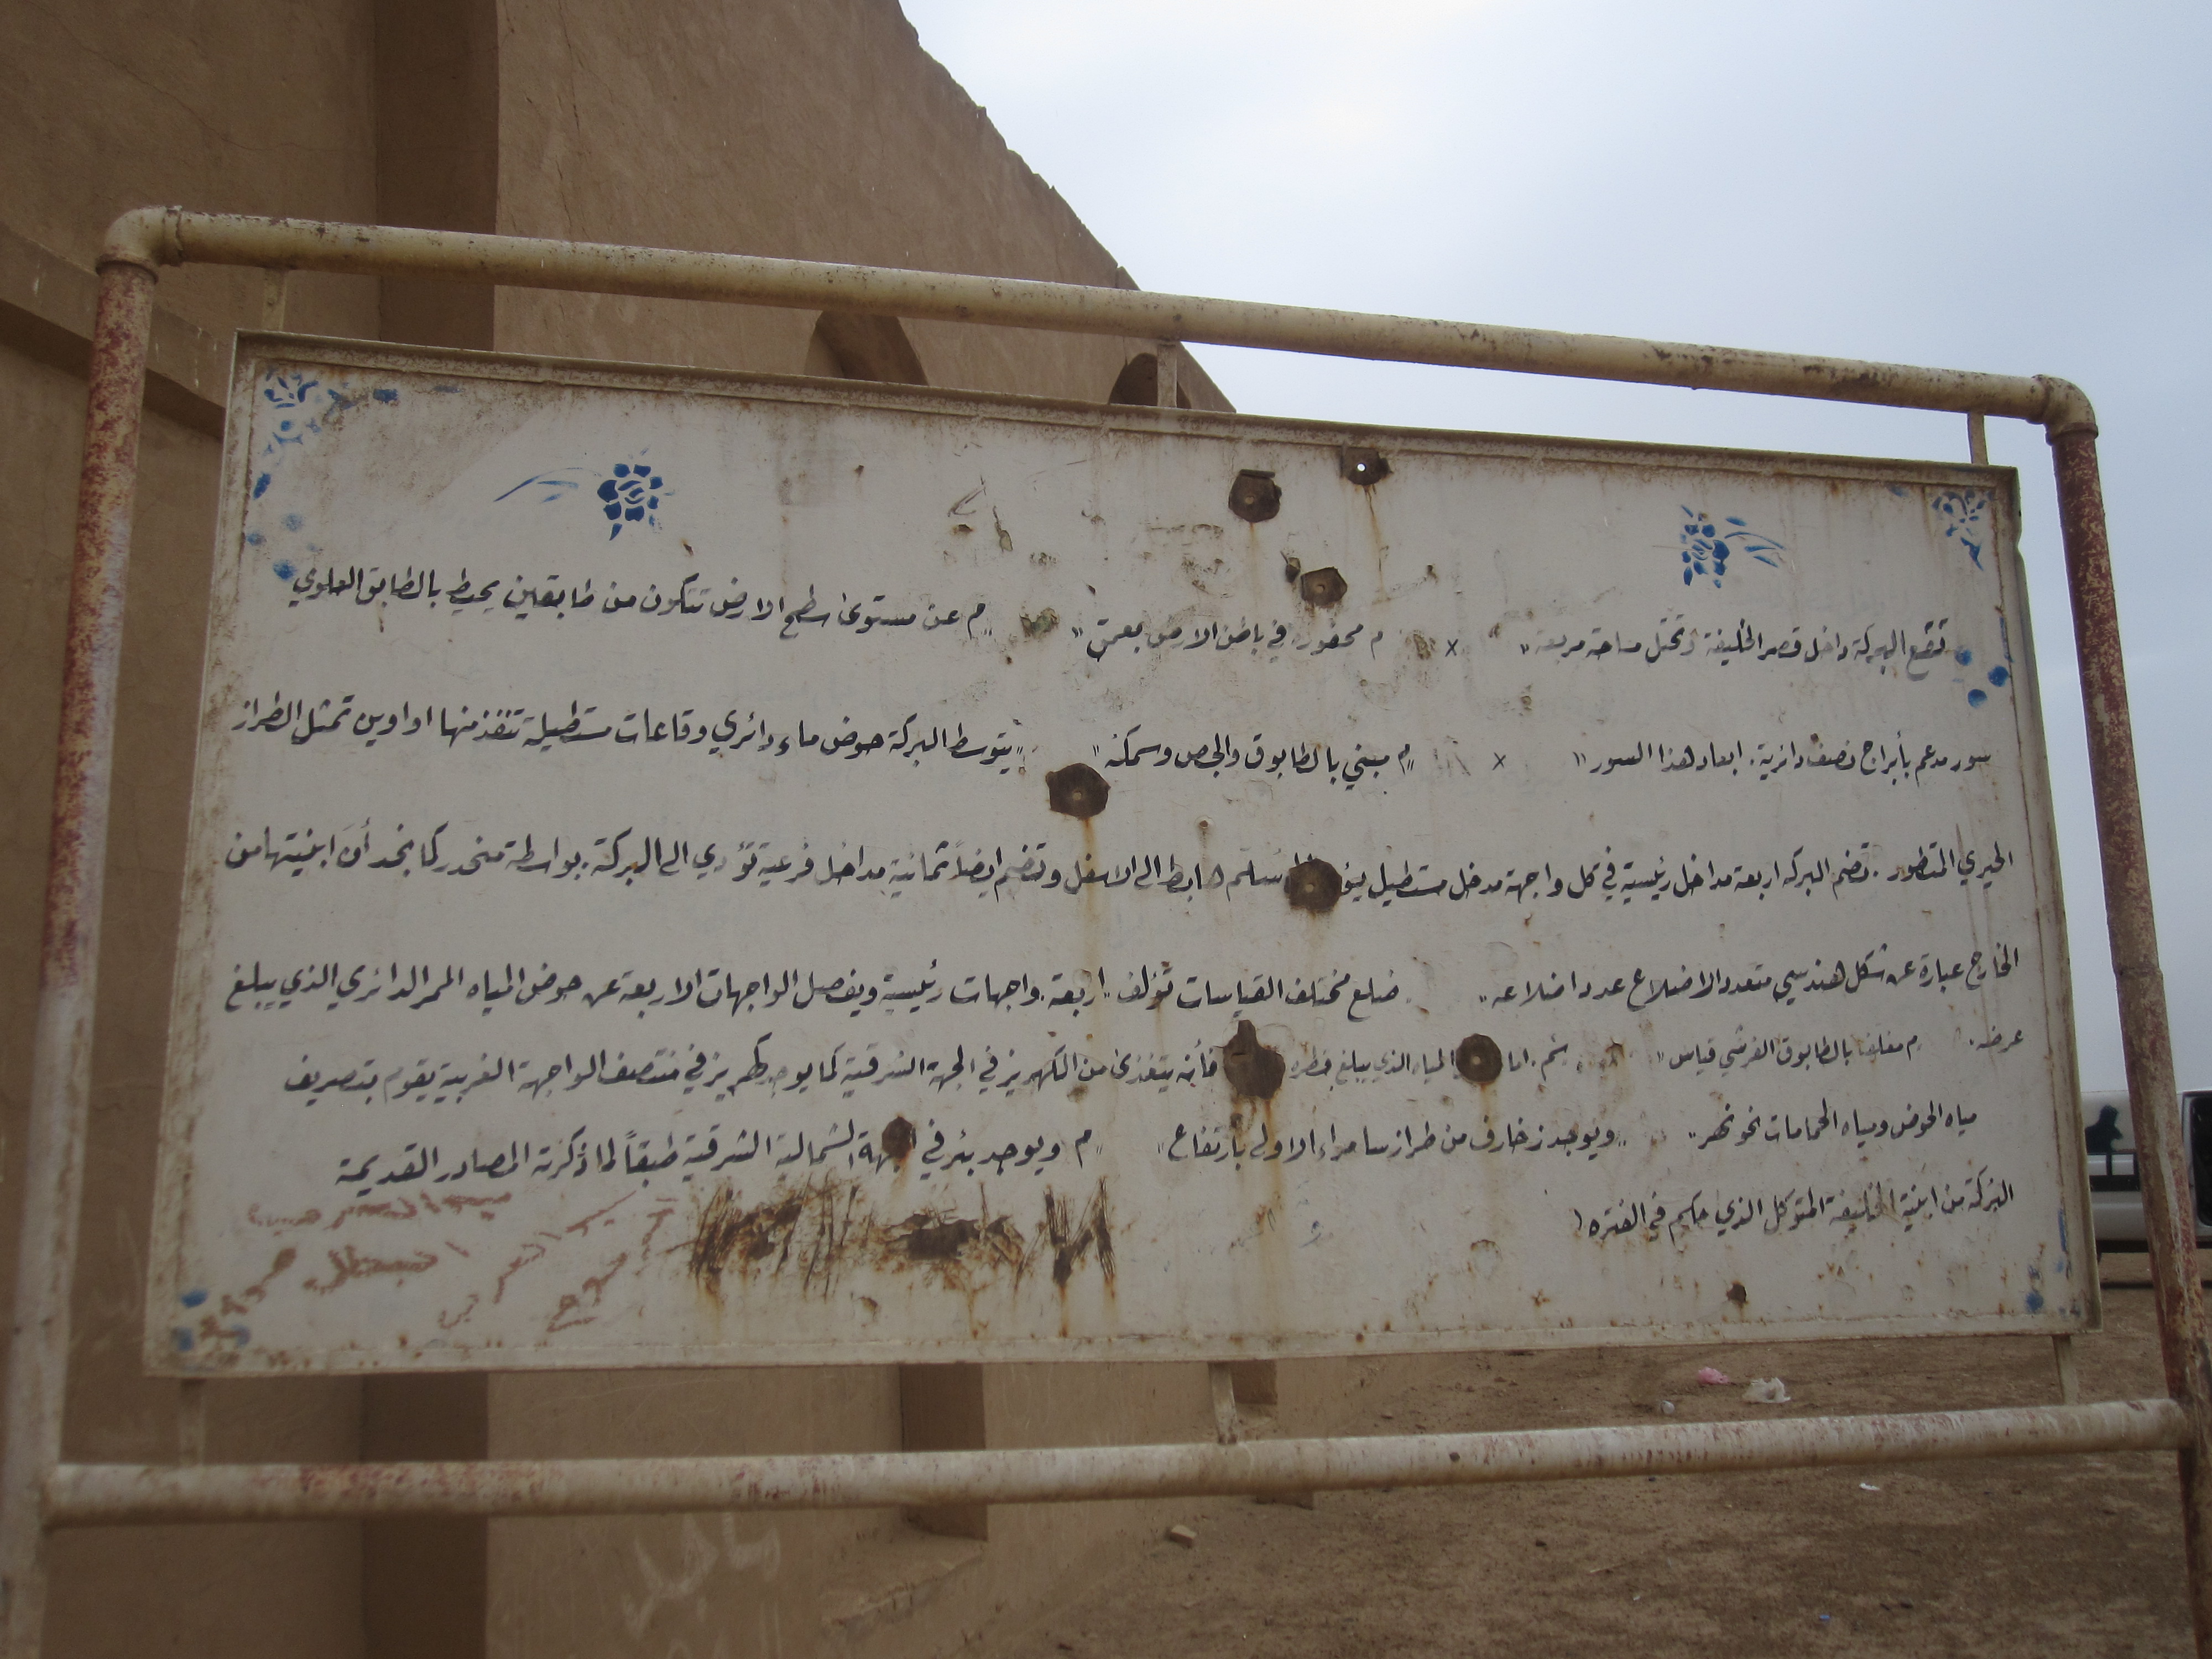 تقع البركة داخل قصر الخليفة وتحتل مساحة مربعة " × م محفورة في باطن الارض بعمق " " م عن مستوى سطح الارض تتكون من طابقين يحيط بالطابق العلوي
سور مدعم بأبراج نصف دائرية . ابعاد هذا السور " × " م مبني بالطابوق والجص وسمكه " " يتوسط البركة حوض ماء دائري وقاعات مستطيلة تنفذ منها اواوين تمثل الطراز
الحيري المتطور . تضم البركه اربعة مداخل رئيسية في كل واجهة مدخل مستطيل سلم هابط الى الاسفل وتضم ايضاً ثمانية مداخل فرعية تؤدي الى البركة . بواسطة منحدر كما نجد أن ابنيتها من
الخارج عبارة عن شكل هندسي متعدد الاضلاع عدد اضلاعه " ضلع مختلف القياسات تؤلف اربعة واجهات رئيسية ويفصل الواجهات الاربعة عن حوض المياه الممر الدائري الذي يبلغ
عرضه . م مغلف بالطابوق الفرشي قياس " سم . اما المياه الذي يبلغ قطره فأنه يتغذى من الكهريز في الجهة الشرقية كما يوجد كهريز في منتصف الواجهة الغربية يقوم بتصريف
مياه الحوض ومياه الحمامات نحو نهر " " ويوجد زخارف من طراز سامراء الاولى بأرتفاع " " م ويوجد بئر في الجهة الشمالية الشرقية طبقاً لما ذكرته المصادر القديمة
البركة من ابنية الخليفة المتوكل الذي حكم في الفتره (